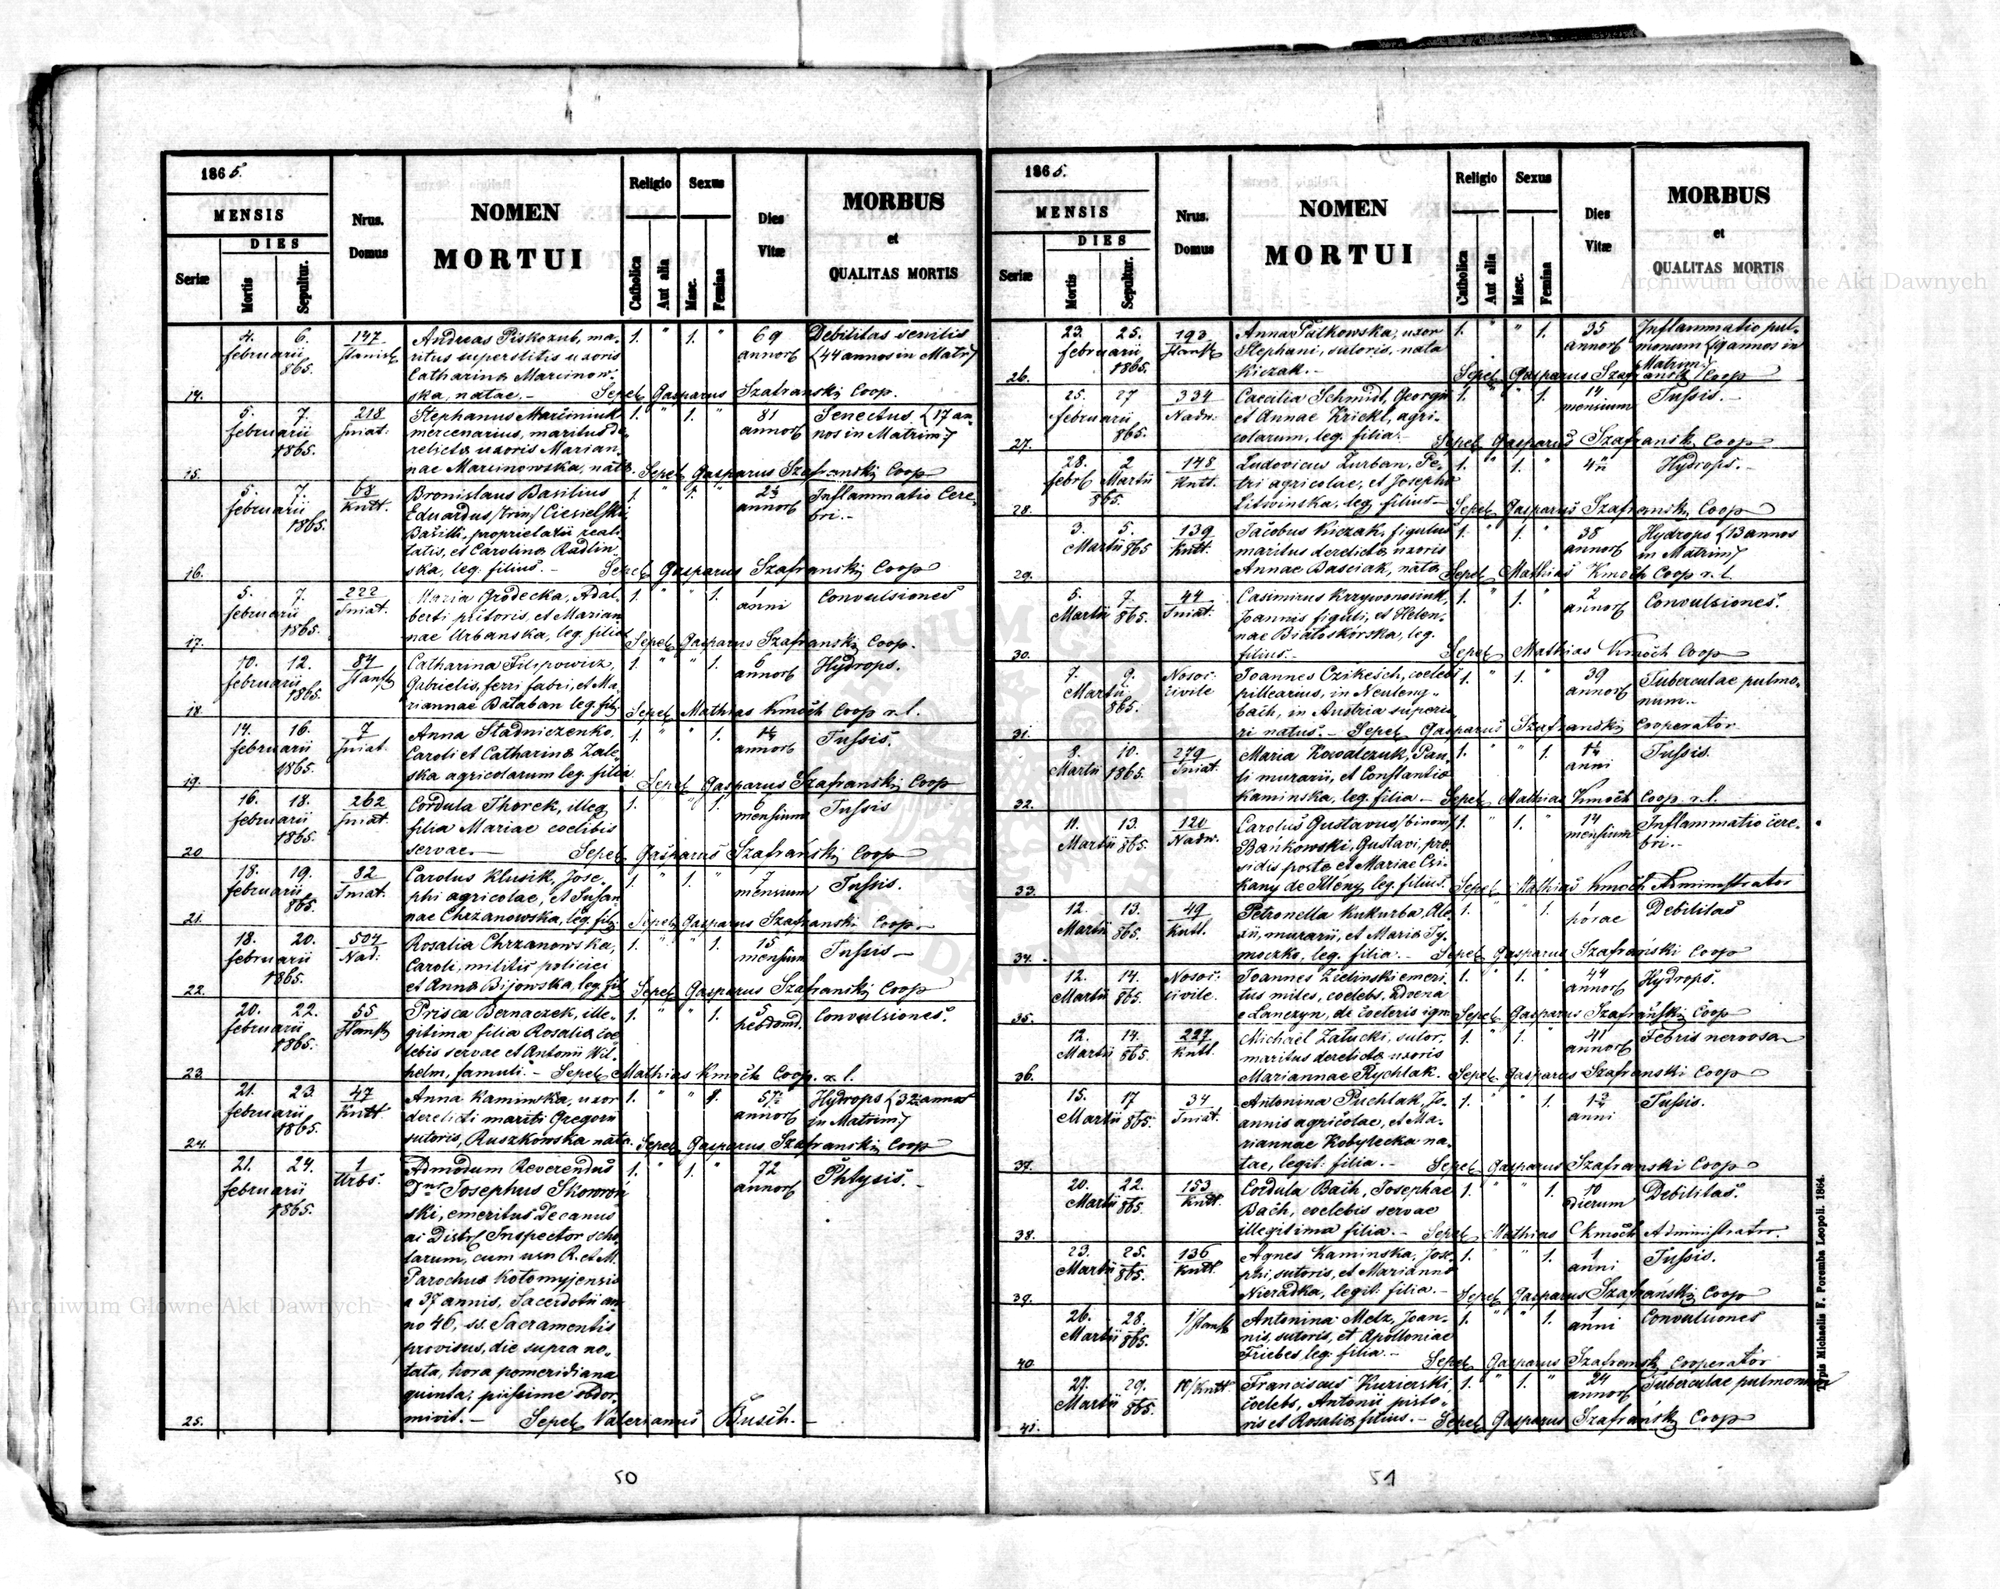 1865.
MENSIS
DIES
Seriæ
Mortis
Sepultur.
Nrus.
Domus
NOMEN
MORTUI
Religio
Catholica
Aut alia
Sexus
Masc.
Femina
Dies
Vitæ
MORBUS
et
QUALITAS MORTIS
4. 6. 147 Andreas Piskozub, ma- 1. " 1. " 69 Debilitas senilis
februarii ritus superstitis uxoris annor (44 annos in Matr:)
865. Catharina Marcinow-
14. ska, natae. - Sepel Gasparus Szafranski Coop.
5. 7. 218 Stephanus Marciniuk 1. " 1. " 81 Senectus (17 an-
februarii Sniat. mercenarius, maritus de- annor nos in Matrim:)
1865. relicta uxoris Marian-
15. nae Marcinowska, nata. Sepel Gasparus Szafranski Coop
5. 7. 68 Bronislaus Basilius 1. 1. " Inflammatio Cere-
februarii Kntt. Eduardus /trin/ Ciesielski annor bri. -
1865. Basilii, proprietarii reali-
tatis, et Carolina Radlin-
16. ska, leg. filius. - Sepel Gasparus Szafranski Coop
5. 7. 222 Maria Grodecka, Adal- 1. " " 1. 1 Convulsiones
februarii Sniat. berti pistoris, et Marian- anni
1865.
17. nae Urbanska, leg. filia Sepel Gasparus Szafranski Coop.
10. 12. 84 Catharina Filipowicz, 1. " " 1. 6 Hydrops.
februarii Gabrielis, ferri fabri, et Ma- annor
1865.
18. riannae Bataban leg. fil. Sepel Mathias Kmoch Coop r. l.
14. 16. 7 Anna Stadniczenko, 1. " " 1. Tussis.
februarii Sniat. Caroli et Catharina Zale- annor
1865. ska agricolarum leg. filia
19. Sepel Gasparus Szafranski Coop
16. 18. 262 Cordula Thorek, illeg. 1. " " 1. 6 Tussis
februarii Sniat. filia Mariae coelibis mensium
1865.
20 servae. - Sepel Gasparus Szafranski Coop
18. 19. 82 Carolus Klusik, Jose- 1. " 1. " 7 Tussis.
februarii Sniat. phi agricolae, et Susan- mensium
865.
21. nae Chrzanowska, leg. fil. Sepel Gasparus Szafranski Coop.
18. 20. 504 Rosalia Chrzanowska, 1. " " 1. 15 Tussis -
februarii Nad: Caroli, militis policici mensium
1865.
22. et Anna Bijowska, leg. fil Sepel Gasparus Szafranski Coop
20. 22. 55 Prisca Bernaczek, ille- 1. " " 1. 5 Convulsiones.
februarii gitima filia Rosalia coe- hebdomd.
1865. lebis servae et Antonii Wil-
23. helm, famuli. - Sepel Mathias Kmoch Coop. r. l.
21. 23. 47 Anna Kaminska, uxor 1. " " 1. 57 Hydrops (32 annos
februarii Kntt derelicti mariti Gregorii annor in Matrim:)
1865. sutoris, Ruszkowska nata.
24. Sepel Gasparus Szafranski Coop
21. 24. 1 Admodum Reverendus 1. " 1. " 72 Phtysis. -
februarii Urbs. Dnus Josephus Skowron- annor
1865. ski, emeritus Decanus
ac Distr. Inspector scho-
larum, cum usu R. et M.
Parochus Kotomyjensis
a 37 annis, Sacerdotii an-
no 46, ss. Sacramentis
provisus, die supra no-
tata, hora pomeridiana
quinta, piissime obdor-
25. mivit. - Sepel Valerianus Busch. -
50
1865.
MENSIS
DIES
Seriæ
Mortis
Sepultur.
Nrus.
Domus
NOMEN
MORTUI
Religio
Catholica
Aut alia
Sexus
Masc.
Femina
Dies
Vitæ
MORBUS
et
QUALITAS MORTIS
23. 25. 193 Anna Patkowska, uxor 1. " " 1. 35 Inflammatio pul-
februarii Stephani, sutoris, nata annor monum (9 annos in
1865. Kiczak. - Matrim:)
26. Sepel Gasparus Szafranski Coop
25. 27 334 Caecilia Schmidt, Georgii 1. " " 1. 14 Tussis. -
februarii Nadw. et Annae Krickl, agri- mensium
865.
27. colarum, leg. filia. - Sepel Gasparus Szafranski Coop
28. 2 148 Ludovicus Zurban, Pe- 1. " 1. " Hydrops. -
febr Martii Kntt. tri agricolae, et Josepha
865.
28. Litwinska, leg. filius - Sepel Gasparus Szafranski Coop
3. 5. 139 Jacobus Kiczak, figulus 1. " 1. " 38 Hydrops (13 annos
Martii 865 Kntt. maritus derelicta uxoris annor in Matrim:)
29. Annae Basciak, nata Sepel Mathias Kmoch Coop r. l.
5. 7. 44 Casimirus Krzywonosiuk, 1. " 1. " 2 Convulsiones.
Martii 865. Sniat. Joannis figuli, et Helen- annor
nae Białoskorska, leg.
30. filius. - Sepel Mathias Kmoch Coop
7. 9. Nosoc. Joannes Czikesch, coelebs 1. " 1. " 39 Tuberculae pulmo-
Martii civile pillearius, in Neuleng- annor num. -
865. bach, in Austria superio-
31. ri natus. - Sepel Gasparus Szafranski Cooperator
8. 10. 279 Maria Kowalczuk, Pau- 1. " " 1. Tussis.
Martii 1865. Sniat. li murarii, et Constantia anni
32. Kaminska, leg. filia - Sepel Mathias Kmoch Coop. r. l.
11. 13. 120 Carolus Gustavus /binom/ 1. " 1. " 14 Inflammatio cere-
Martii 865. Nadw. Bankowski, Gustavi, prae- mensium bri. -
sidis posta et Mariae Czi-
33. kany de Illeny, leg. filius. Sepel Mathias Kmoch Administrator
12. 13. 49 Petronella Kukurba, Ale- 1. " " 1. 1 Debilitas
Martii 865. Kntt. xii, murarii, et Maria Ty- horae
34. moczko, leg. filia. - Sepel Gasparus Szafranski Coop
12. 14. Nosoc. Joannes Zielinski emeri- 1. " 1. " 44 Hydrops.
Martii 865. civile. tus miles, coelebs. Advena annor
35. e Lanczyn, de coeteris ign Sepel Gasparus Szafranski Coop
12. 14. 227 Michael Zatucki, sutor 1. " 1. " 41 Febris nervosa
Martii 865. Kntt. maritus derelicta uxoris annor
36. Mariannae Rychlak. Sepel Gasparus Szafranski Coop
15. 17 34 Antonina Puchlak, Jo- 1. " " 1. Tussis.
Martii 865. Sniat. annis agricolae, et Ma- anni
riannae Kobylecka na-
37. tae, legit. filia. - Sepel Gasparus Szafranski Coop
20. 22. 153 Cordula Bach, Josephae 1. " " 1. 10 Debilitas.
Martii 865. Kntt. Bach, coelebis servae dierum
38. illegitima filia. - Sepel Mathias Kmoch Administrator.
23. 25. 136 Agnes Kaminska, Jose- 1. " " 1. 1 Tussis.
Martii 865. Kntt. phi, sutoris, et Marianna anni
39. Nieradka, legit. filia. - Sepel Gasparus Szafranski Coop
26. 28. Antonina Melz, Joan- 1. " " 1. 1 Convulsiones
Martii 865. nis, sutoris, et Apolloniae anni
40. Friebes, leg. filia. - Sepel Gasparus Szafranski Cooperator
27. 29. Franciscus Kuzierski, 1. " 1. " 24 Tuberculae pulmonum
Martii 865. coelebs, Antonii pisto- annor
41. ris et Rosalia filius. - Sepel Gasparus Szafranski Coop
51
Typis Michaelis F. Poremba Leopoli. 1864.
Archiwum Główne Akt Dawnych
Archiwum Główne Akt Dawnych